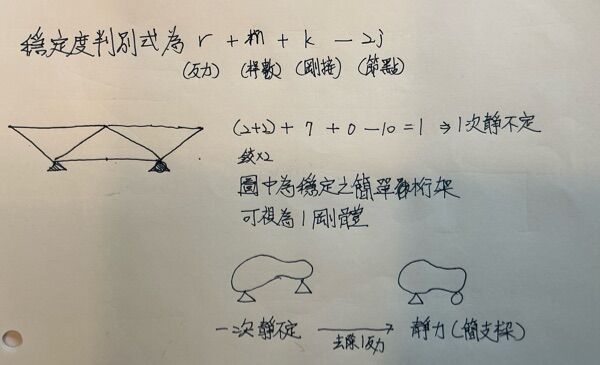 穩定度判別式為 r + m + k - 2j
(反力) (桿數) (剛接) (節點)
(2+2) + 7 + 0 - 10 = 1 ⇒ 1次靜不定
鉸×2
圖中為穩定之簡單桁架
可視為1剛體
一次靜不定 去除1反力 靜力(簡支樑)